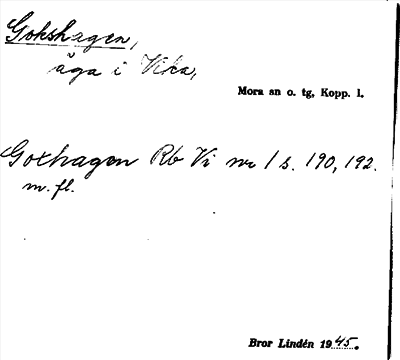 Gokshagen,
äga i Vika,
Mora sn o. tg, Kopp. l.
Goxhagen Rb Vi nr 1 s. 190, 192.
m. fl.
Bror Lindén 1945.